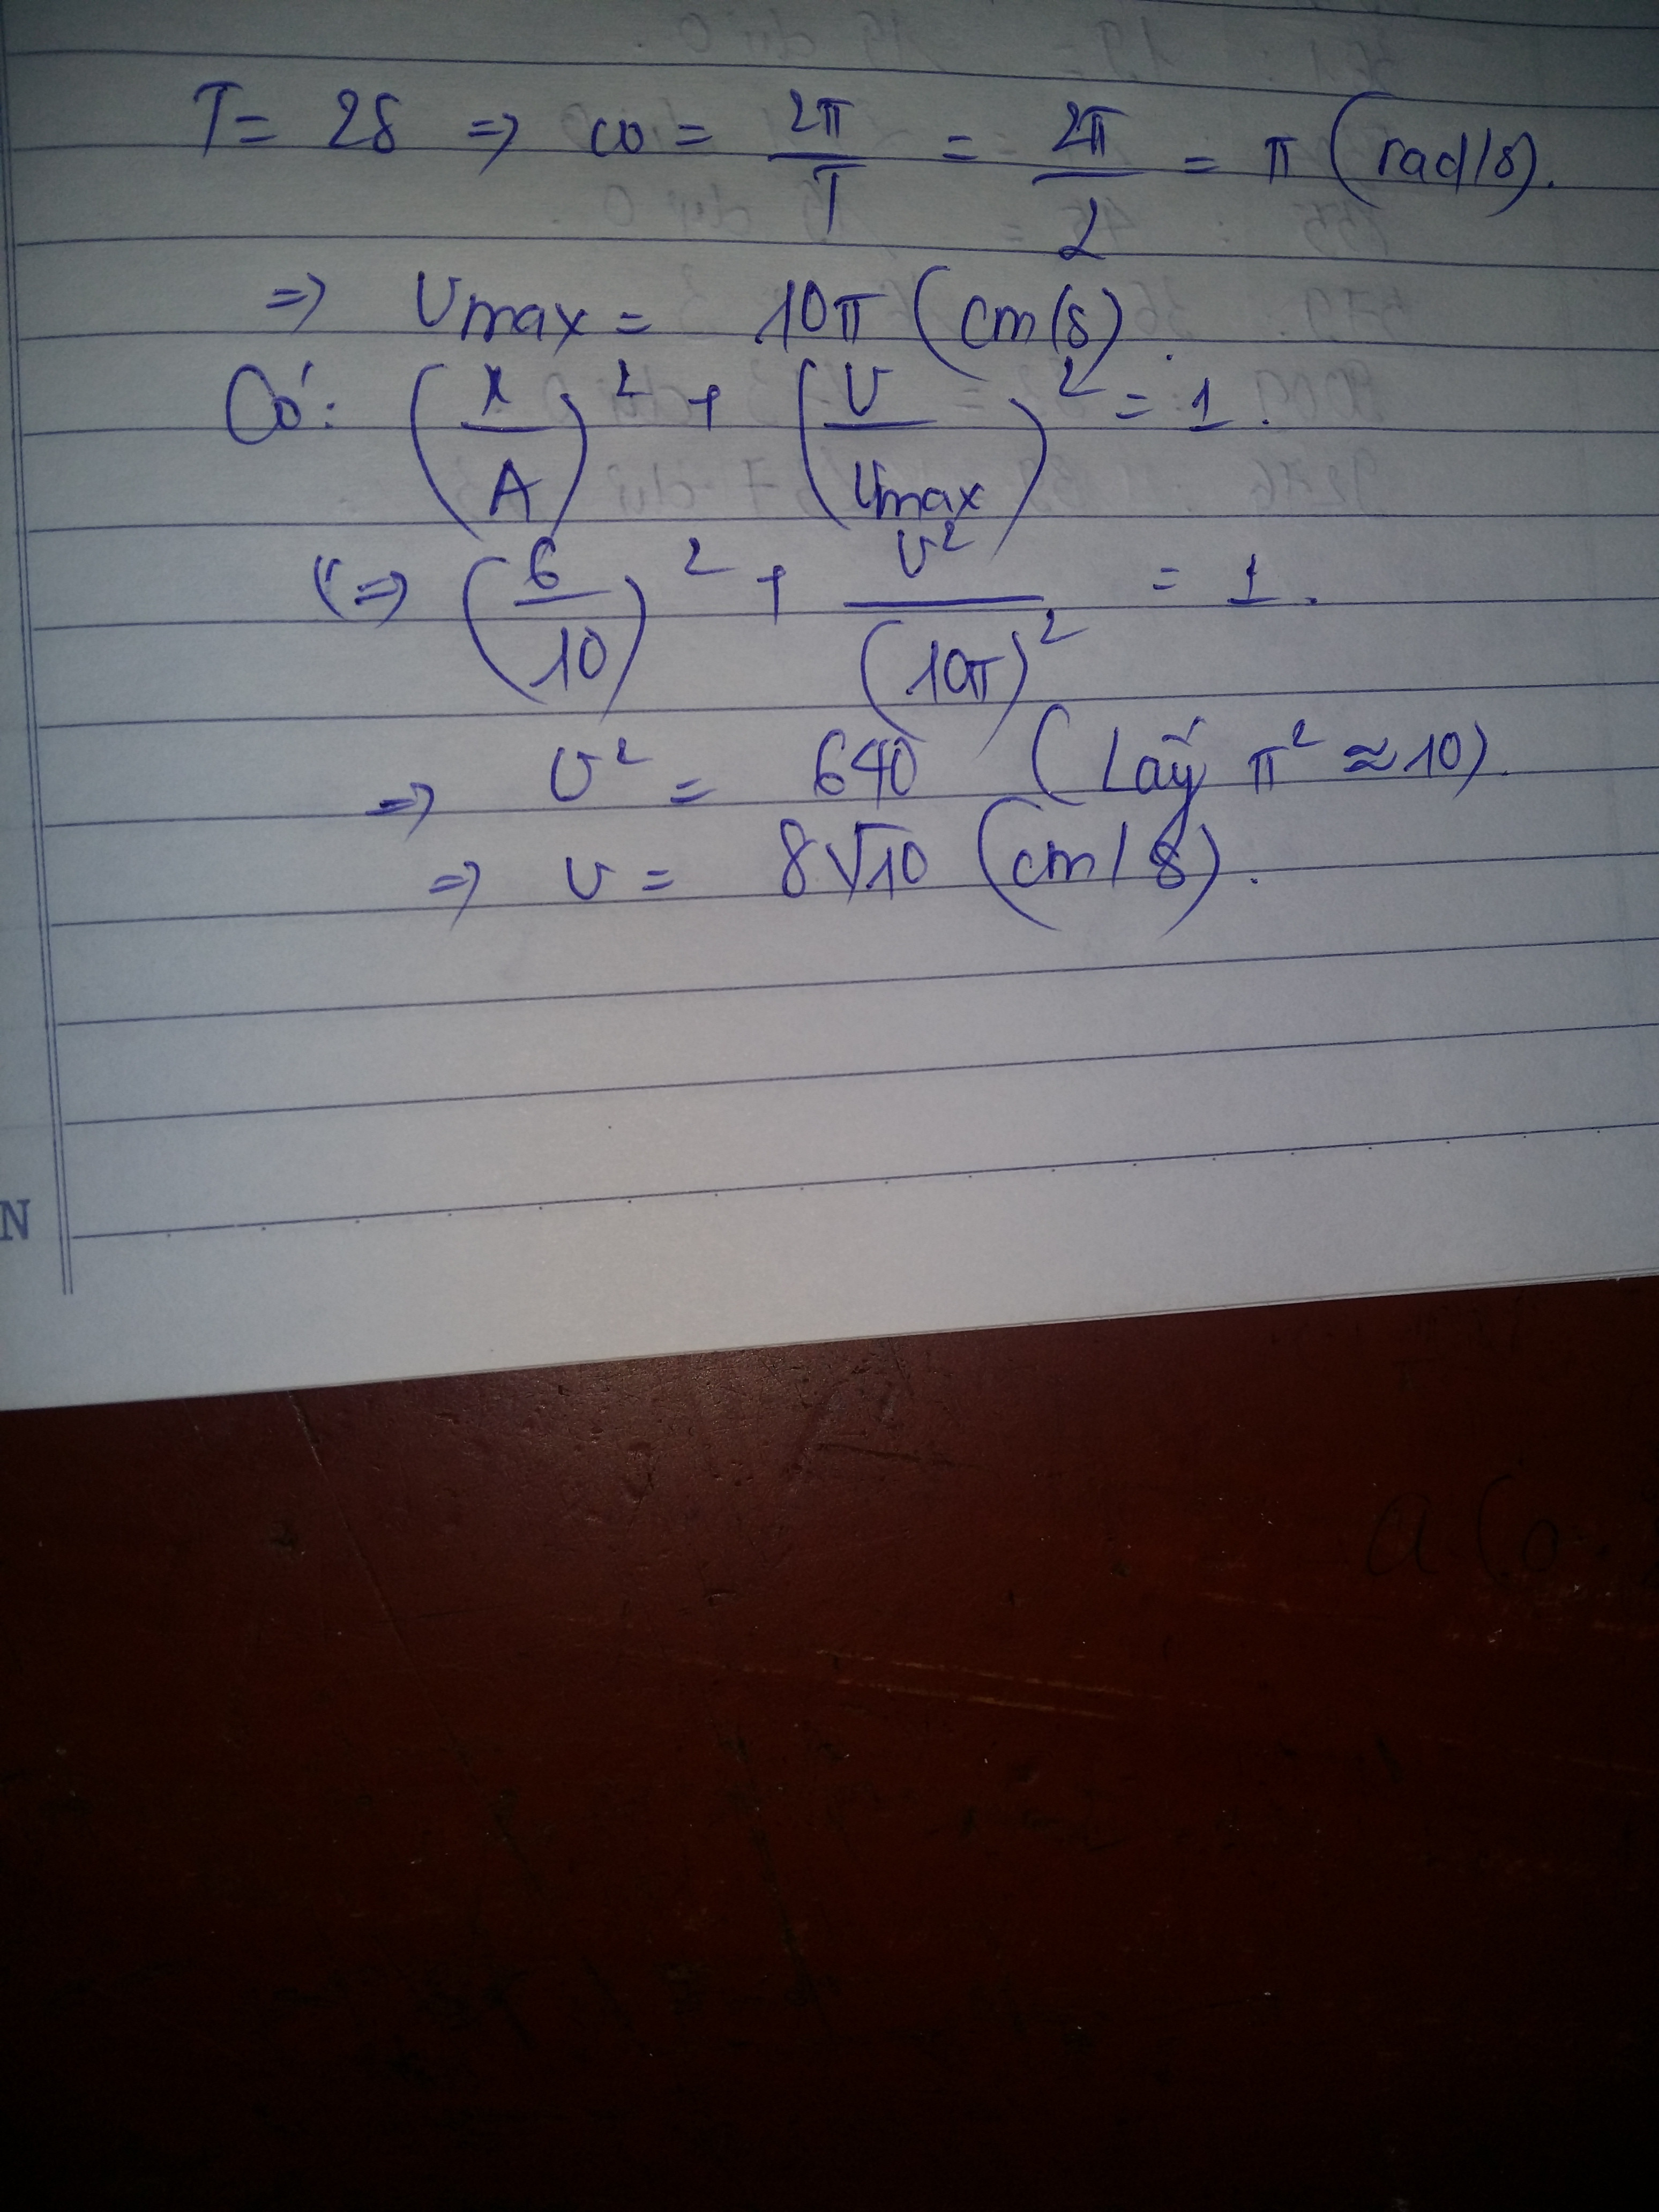 T = 2s => ω = 2π/T = 2π/2 = π (rad/s).
=> vmax = 10π (cm/s).
Có: (x/A)² + (v/vmax)² = 1.
(=> (6/10)² + v²/(10π)² = 1.
=> v² = 640 (Lấy π² ≈ 10).
=> v = 8√10 (cm/s).
N